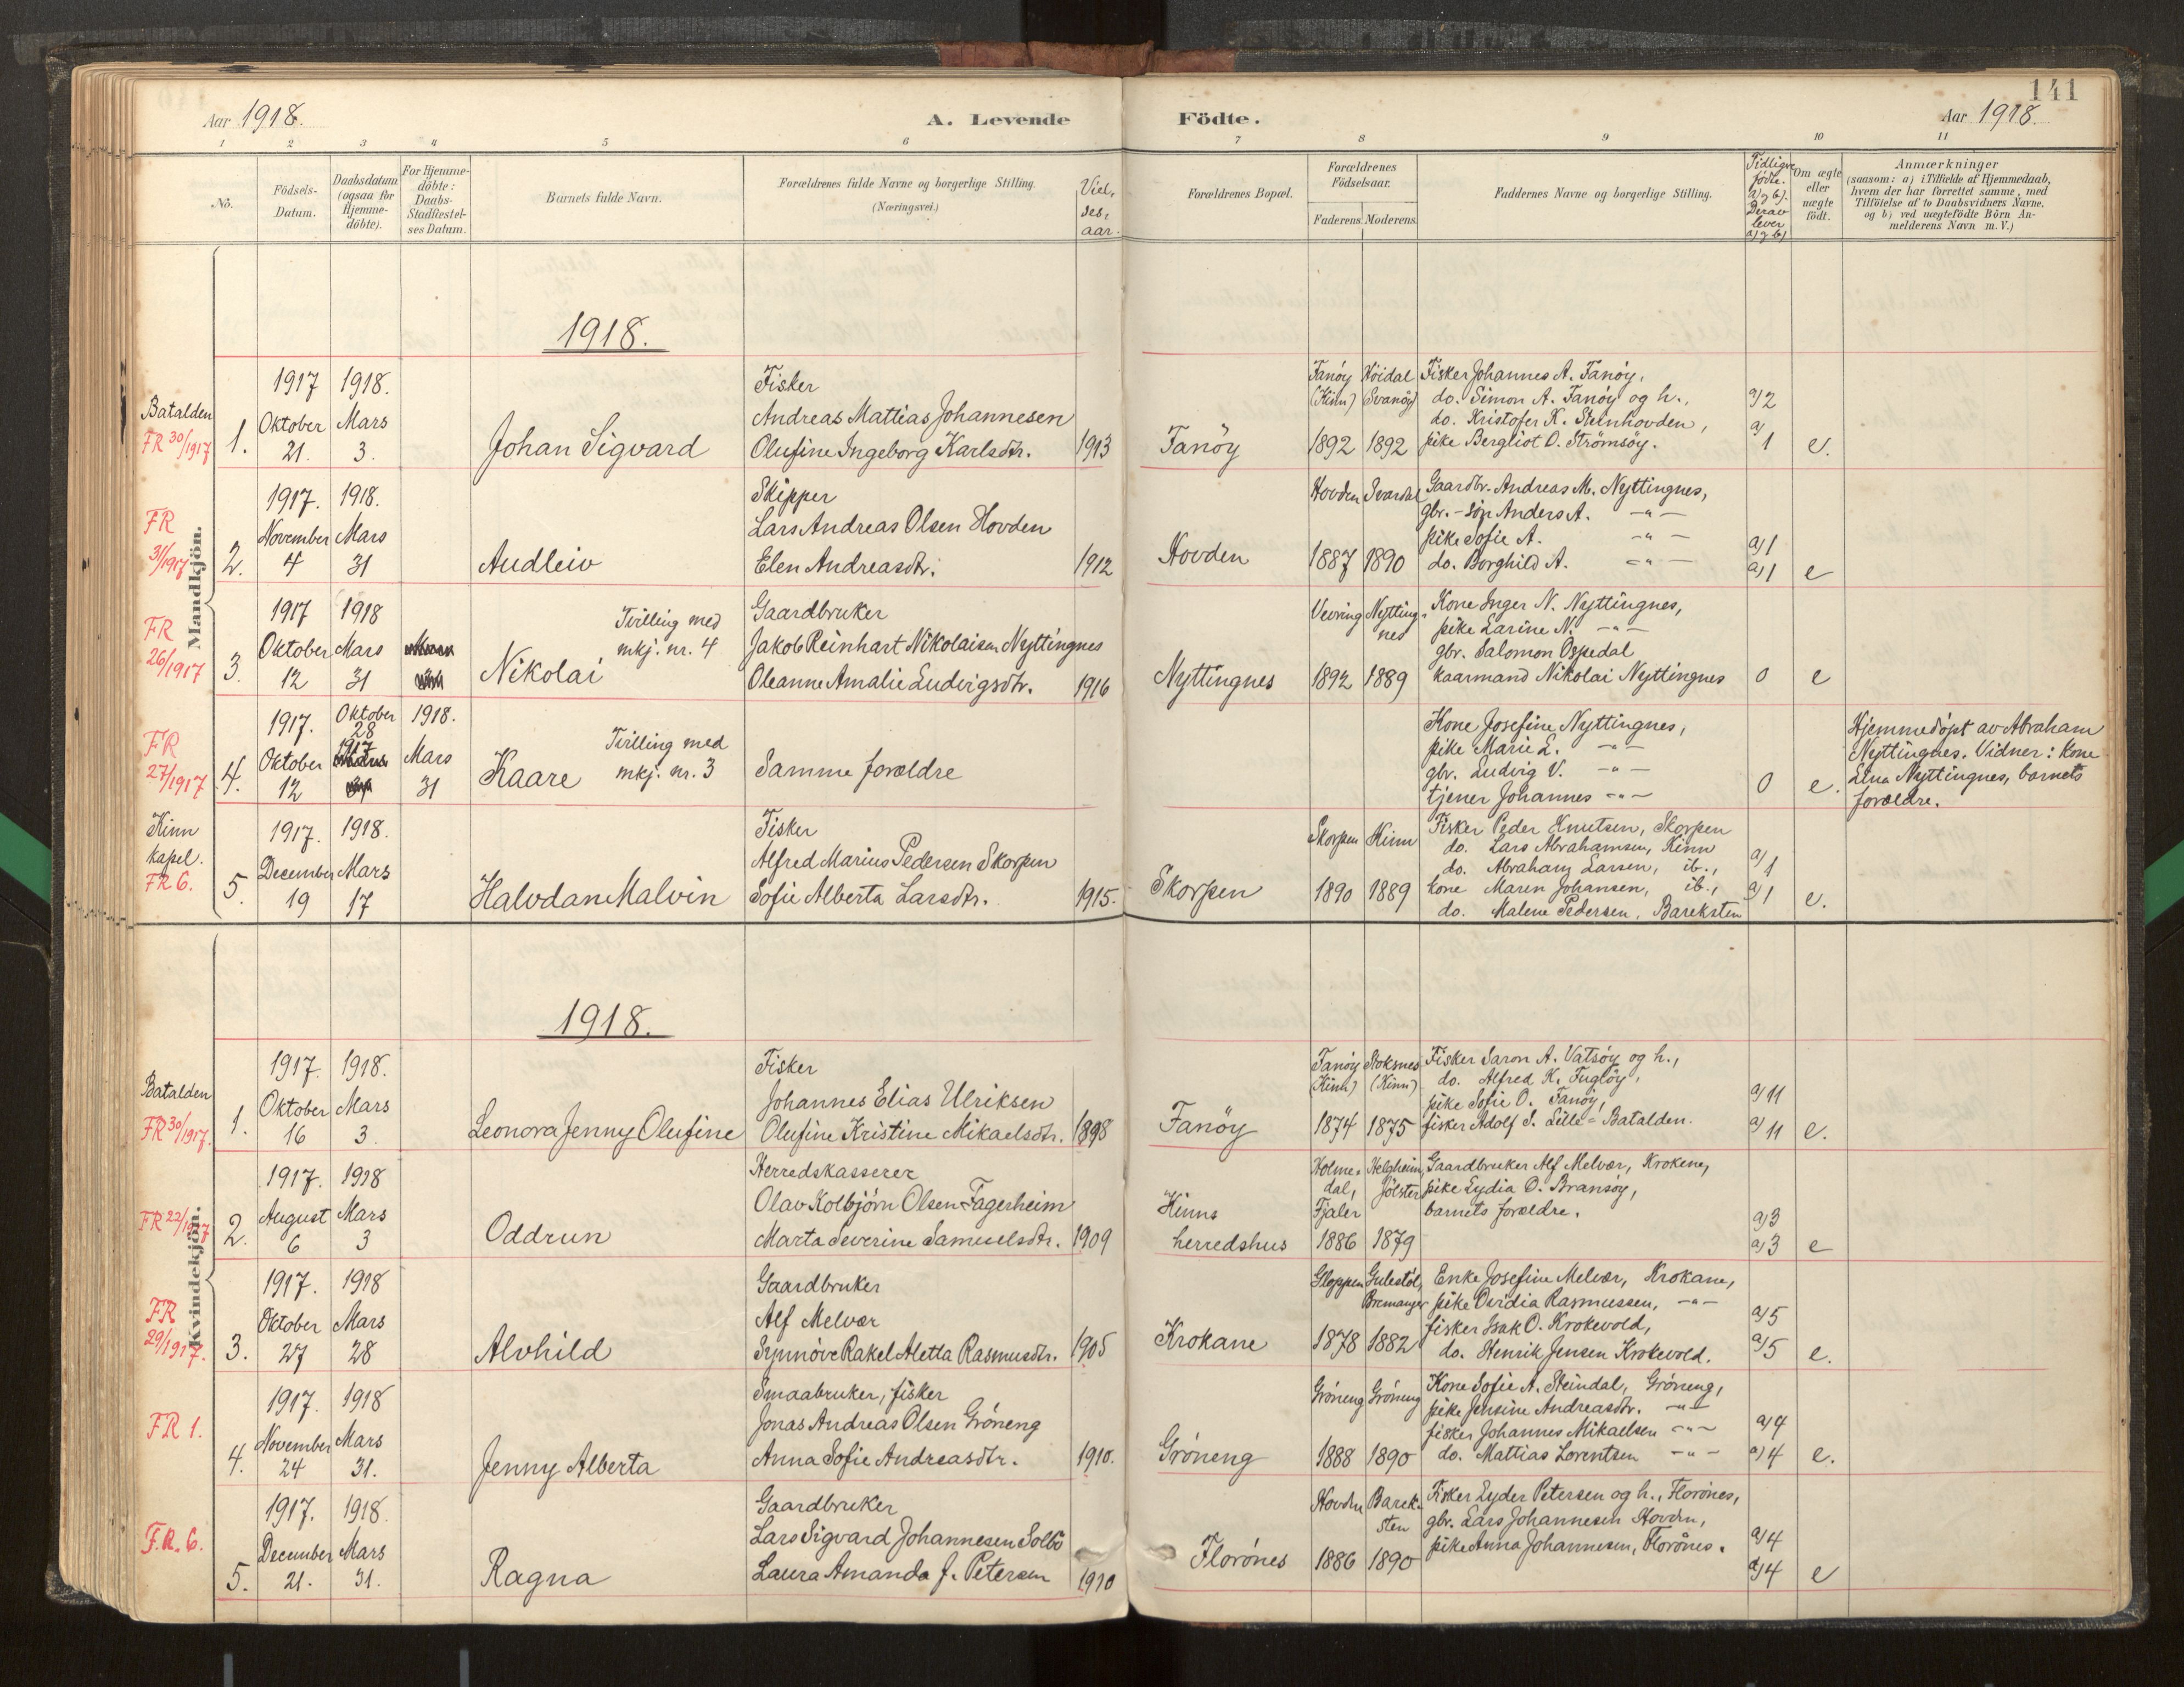 141
Aar 1918.
A. Levende Födte.
Aar 1918.
1 2 3 4 5 6 7 8 9 10 11
No.
Födsels-
Datum.
Daabsdatum
(ogsaa for
Hjemme-
döbte).
For Hjemme-
döbte:
Daabs-
Stadfæstel-
ses Datum.
Barnets fulde Navn.
Forældrenes fulde Navne og borgerlige Stilling.
(Næringsvei.)
Viel-
ses-
aar.
Forældrenes Bopæl.
Forældrenes
Födselsaar.
Faderens. Moderens.
Faddernes Navne og borgerlige Stilling.
Tidligere
fødte.
a) g b).
Derav
lever
a) g b)
Om ægte
eller
uægte
födt.
Anmærkninger
(saasom: a) i Tilfælde af Hjemmedaab,
hvem der har forrettet samme, med
Tilföielse af to Daabsvidners Navne,
og b) ved uægtefödte Börn An-
melderens Navn m. V.)
Mandkjön.
1918.
Batalden
FR 30/1917
1.
1917
Oktober
21.
1918.
Mars
3.
Johan Sigvard
Fisker
Andreas Mattias Johannesen
Olufine Ingeborg Karlsdtr.
1913
Fanöy
Fanöy
(Kinn)
1892
Höidal
(Svanöy)
1892
Fisker Johannes A. Fanöy,
do. Simon A. Fanöy og h.,
do. Kristofer K. Steinhovden,
pike Bergliot O. Strömsöy.
a) 2
a) 1
e.
FR
31/1917
2.
1917.
November
4
1918.
Mars
31
Audleiv
Skipper
Lars Andreas Olsen Hovden
Elen Andreasdtr.
1912
Hovden
Hovden
1887
Svardal
1890
Gaardbr. Andreas M. Nyttingnes,
gbr.-søn Anders A. -"-
pike Sofie A. -"-
do. Borghild A. -"-
a) 1
a) 1
e
FR
26/1917
3.
1917
Oktober
12
1918
Mars
31
Nikolai
Tvilling med
mkj. nr. 4
Gaardbruker
Jakob Reinhart Nikolaisen Nyttingnes
Oleanne Amalie Ludvigsdtr.
1916
Nyttingnes
Vevring
1892
Nytting-
nes
1889
Kone Inger N. Nyttingnes,
pike Larine N. -"-
gbr. Salomon Ospedal
kaarmand Nikolai Nyttingnes
0
e
FR
27/1917
4.
1917.
Oktober
12
Oktober
28
1917
1918.
Mars
31
Kaare
Tvilling med
mkj. nr. 3
Samme forældre
Kone Josefine Nyttingnes,
pike Marie L. -"-
gbr. Ludvig V. -"-
tjener Johannes -"-
0
e.
Hjemmedöpt av Abraham
Nyttingnes. Vidner: kone
Lina Nyttingnes, barnets
forældre.
Kinn
kapel.
FR 6.
5.
1917.
December
19
1918.
Mars
17
Halvdan Malvin
Fisker
Alfred Marius Pedersen Skorpen
Sofie Alberta Larsdtr.
1915.
Skorpen
Skorpen
1890
Kinn
1889
Fisker Peder Knutsen, Skorpen
do. Lars Abrahamsen, Kinn
do. Abraham Larsen, ib.,
kone Maren Johansen, ib.,
do. Malene Pedersen, Bareksten
a) 1
a) 1
e.
Kvindekjön.
1918.
Batalden
FR 30/1917.
1.
1917.
Oktober
16
1918.
Mars
3.
Leonora Jenny Olufine
Fisker
Johannes Elias Ulriksen
Olufine Kristine Mikaelsdtr.
1898
Fanöy
Fanöy
(Kinn)
1874
Stoksnes
(Kinn)
1875
Fisker Saron A. Vatsöy og h.,
do. Alfred K. Fuglöy,
pike Sofie O. Fanöy,
fisker Adolf S. Lille-Batalden.
a) 11
a) 11
e.
FR 22/1917
2.
1917.
August
6
1918
Mars
3
Oddrun
Herredskasserer
Olav Kolbjörn Olsen Fagerheim
Marta Severine Samuelsdtr.
1909
Kinns
herredshus
Holme-
dal,
Fjaler
1886
Helgheim,
Jölster
1879
Gaardbruker Alf Melvær, Krokene,
pike Lydia O. Bransöy,
barnets forældre.
a) 3
a) 3
e
FR
29/1917.
3.
1917.
Oktober
27
1918
Mars
28
Alvhild
Gaardbruker
Alf Melvær
Synnöve Rakel Aletta Rasmusdtr.
1905
Krokane
Gloppen
1878
Gulestöl,
Bremanger
1882
Enke Josefine Melvær, Krokane,
pike Ovidia Rasmussen, -"-
fisker Isak O. Krokevold,
do. Henrik Jensen Krokevold.
a) 5
a) 5
e.
FR 1.
4.
1917.
November
24
1918
Mars
31.
Jenny Alberta
Smaabruker, fisker
Jonas Andreas Olsen Gröneng
Anna Sofie Andreasdtr.
1910.
Gröneng
Gröneng
1888
Gröneng
1890
Kone Sofie A. Steindal, Gröneng,
pike Jensine Andreasdtr. -"-
fisker Johannes Mikaelsen -"-
do. Mattias Lorentsen -"-
a) 4
a) 4
e.
F.R. 6.
5.
1917.
December
21.
1918.
Mars
31.
Ragna
Gaardbruker
Lars Sigvard Johannesen Solbö
Laura Amanda f. Petersen
1910
Florönes
Hovden
1886
Barek-
sten
1890
Fisker Eyder Petersen og h., Florönes,
gbr. Lars Johannesen Hovden,
pike Anna Johannesen, Florönes.
a) 4
a) 4
e